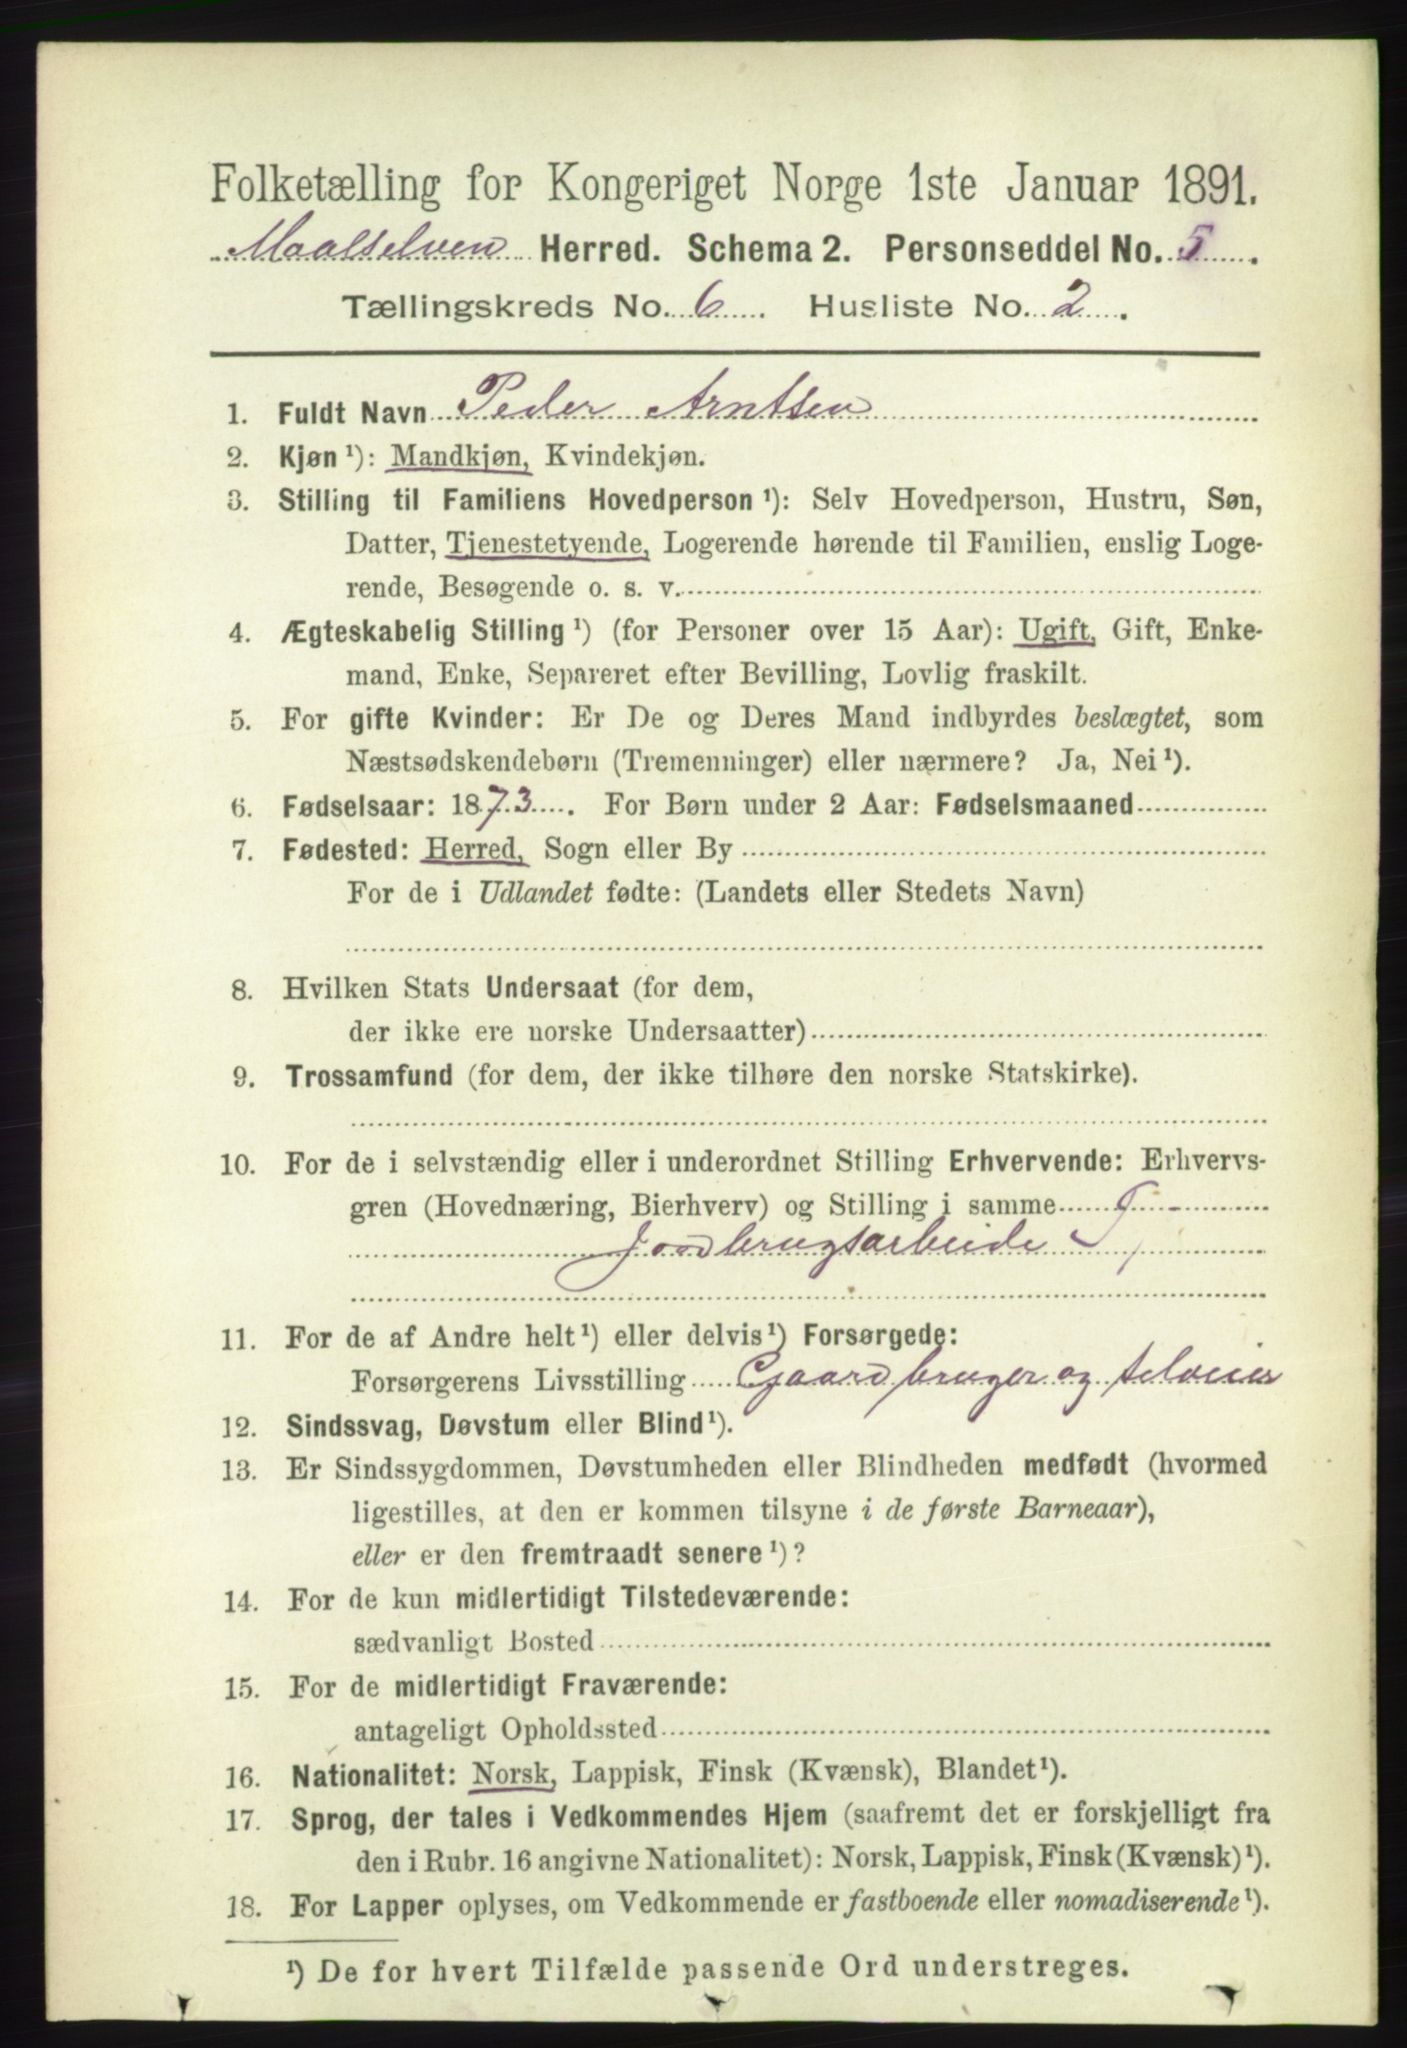 Folketælling for Kongeriget Norge 1ste Januar 1891.
Maalselven Herred. Schema 2. Personseddel No. 5.
Tællingskreds No. 6. Husliste No. 2.
1. Fuldt Navn Peder Arntsen
2. Kjøn ¹): Mandkjøn, Kvindekjøn.
3. Stilling til Familiens Hovedperson ¹): Selv Hovedperson, Hustru, Søn,
Datter, Tjenestetyende, Logerende hørende til Familien, enslig Loge-
rende, Besøgende o. s. v.
4. Ægteskabelig Stilling ¹) (for Personer over 15 Aar): Ugift, Gift, Enke-
mand, Enke, Separeret efter Bevilling, Lovlig fraskilt.
5. For gifte Kvinder: Er De og Deres Mand indbyrdes beslægtet, som
Næstsødskendebørn (Tremenninger) eller nærmere? Ja, Nei ¹).
6. Fødselsaar: 1873. For Børn under 2 Aar: Fødselsmaaned
7. Fødested: Herred, Sogn eller By
For de i Udlandet fødte: (Landets eller Stedets Navn)
8. Hvilken Stats Undersaat (for dem,
der ikke ere norske Undersaatter)
9. Trossamfund (for dem, der ikke tilhøre den norske Statskirke).
10. For de i selvstændig eller i underordnet Stilling Erhvervende: Erhvervs-
gren (Hovednæring, Bierhverv) og Stilling i samme
Jordbrugsarbeide
11. For de af Andre helt ¹) eller delvis ¹) Forsørgede:
Forsørgerens Livsstilling Gaardbruger og selveier
12. Sindssvag, Døvstum eller Blind ¹).
13. Er Sindssygdommen, Døvstumheden eller Blindheden medfødt (hvormed
ligestilles, at den er kommen tilsyne i de første Barneaar),
eller er den fremtraadt senere ¹)?
14. For de kun midlertidigt Tilstedeværende:
sædvanligt Bosted
15. For de midlertidigt Fraværende:
antageligt Opholdssted
16. Nationalitet: Norsk, Lappisk, Finsk (Kvænsk), Blandet ¹).
17. Sprog, der tales i Vedkommendes Hjem (saafremt det er forskjelligt fra
den i Rubr. 16 angivne Nationalitet): Norsk, Lappisk, Finsk (Kvænsk) ¹).
18. For Lapper oplyses, om Vedkommende er fastboende eller nomadiserende ¹).
¹) De for hvert Tilfælde passende Ord understreges.